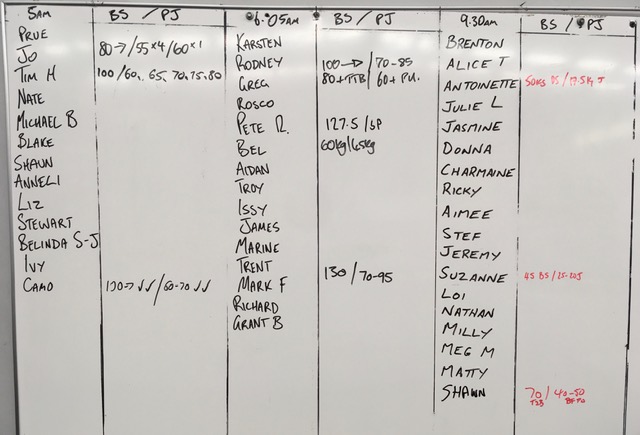 5am BS / PJ
PRUE
JO 80→/55×4/60×1
TIM H 100/60, 65, 70, 75, 80
NATE
MICHAEL B
BLAKE
SHAUN
ANNELI
LIZ
STEWART
BELINDA S-J
IVY
CAMO
6:05am BS / PJ
KARSTEN
RODNEY 100→/70-85
GREG 80+TTB/60+PU.
ROSCO
PETE R. 127.5/SP
BEL 60kg/45kg
AIDAN
TROY
ISSY
JAMES
MARINE
TRENT
MARK F 130/70-95
RICHARD
GRANT B
9:30am BS / PJ
BRENTON
ALICE T
ANTOINETTE
JULIE L
JASMINE
DONNA
CHARMAINE
RICKY
AIMEE
STEF
JEREMY
SUZANNE 45 BS/
LOI
NATHAN
MILLY
MEG M
MATTY
SHAWN 70/40-50